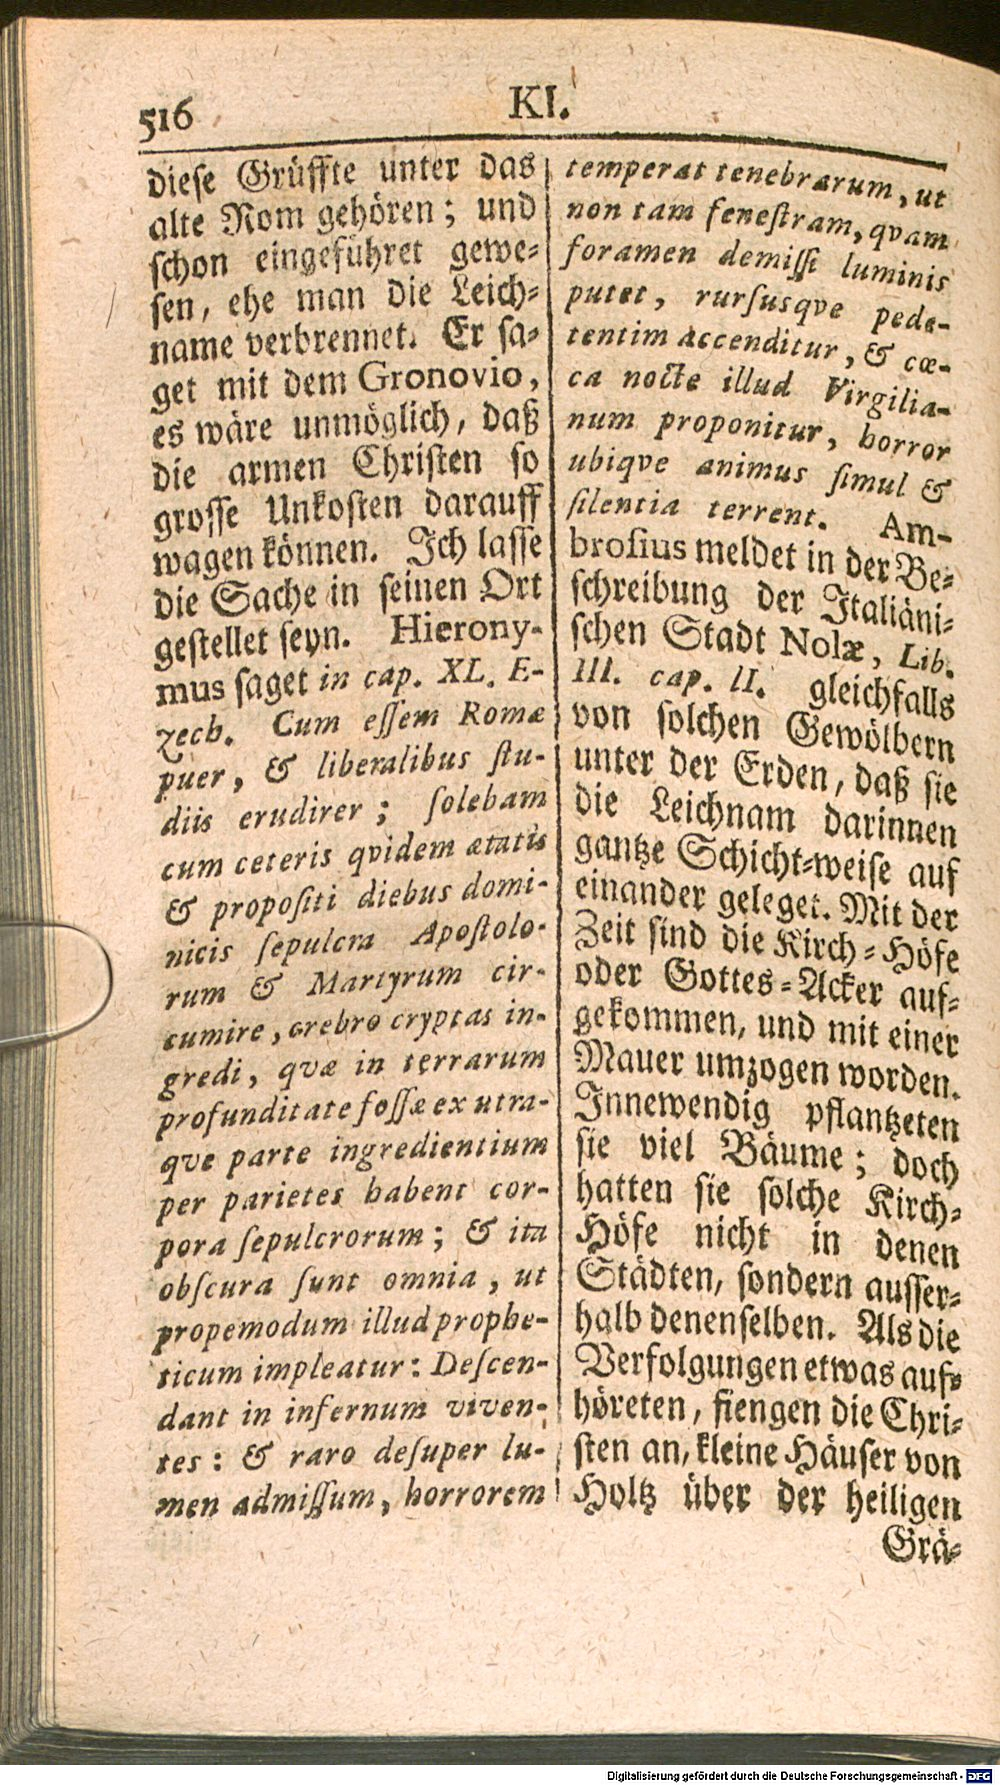 516
KI.
dieſe Grüffte unter das
alte Rom gehören; und
ſchon eingeführet gewe⸗
ſen, ehe man die Leich⸗
name verbrennet. Er ſa⸗
get mit dem Gronovio,
es wäre unmöglich, daß
die armen Chriſten ſo
groſſe Unkoſten darauff
wagen können. Ich laſſe
die Sache in ſeinen Ort
geſtellet ſeyn. Hierony-
mus ſaget in cap. XL. E-
zech. Cum eſſem Romæ
puer, & liberalibus ſtu-
diis erudirer; ſolebam
cum ceteris qvidem ætatis
& propoſiti diebus domi-
nicis ſepulcra Apoſtolo-
rum & Martyrum cir-
cumire, crebro cryptas in-
gredi, qvæ in terrarum
profunditate foſſæ ex utra-
qve parte ingredientium
per parietes habent cor-
pora ſepulcrorum; & ita
obſcura ſunt omnia, ut
propemodum illud prophe-
ticum impleatur: Deſcen-
dant in infernum viven-
tes: & raro deſuper lu-
men admiſſum, horrorem
temperat tenebrarum, ut
non tam feneſtram, qvam
foramen demiſſi luminis
putet, rurſusqve pede-
tentim accenditur, & cœ-
ca nocte illud Virgilia-
num proponitur, horror
ubiqve animus ſimul &
ſilentia terrent. Am-
broſius meldet in der Be⸗
ſchreibung der Italiäni⸗
ſchen Stadt Nolæ, Lib.
III. cap. II. gleichfalls
von ſolchen Gewölbern
unter der Erden, daß ſie
die Leichnam darinnen
gantze Schicht⸗weiſe auf
einander geleget. Mit der
Zeit ſind die Kirch⸗Höfe
oder Gottes⸗Acker auf⸗
gekommen, und mit einer
Mauer umzogen worden.
Innewendig pflantzeten
ſie viel Bäume; doch
hatten ſie ſolche Kirch⸗
Höfe nicht in denen
Städten, ſondern auſſer⸗
halb denenſelben. Als die
Verfolgungen etwas auf⸗
höreten, fiengen die Chri⸗
ſten an, kleine Häuſer von
Holtz über der heiligen
Grä⸗
Digitalisierung gefördert durch die Deutsche Forschungsgemeinschaft - DFG